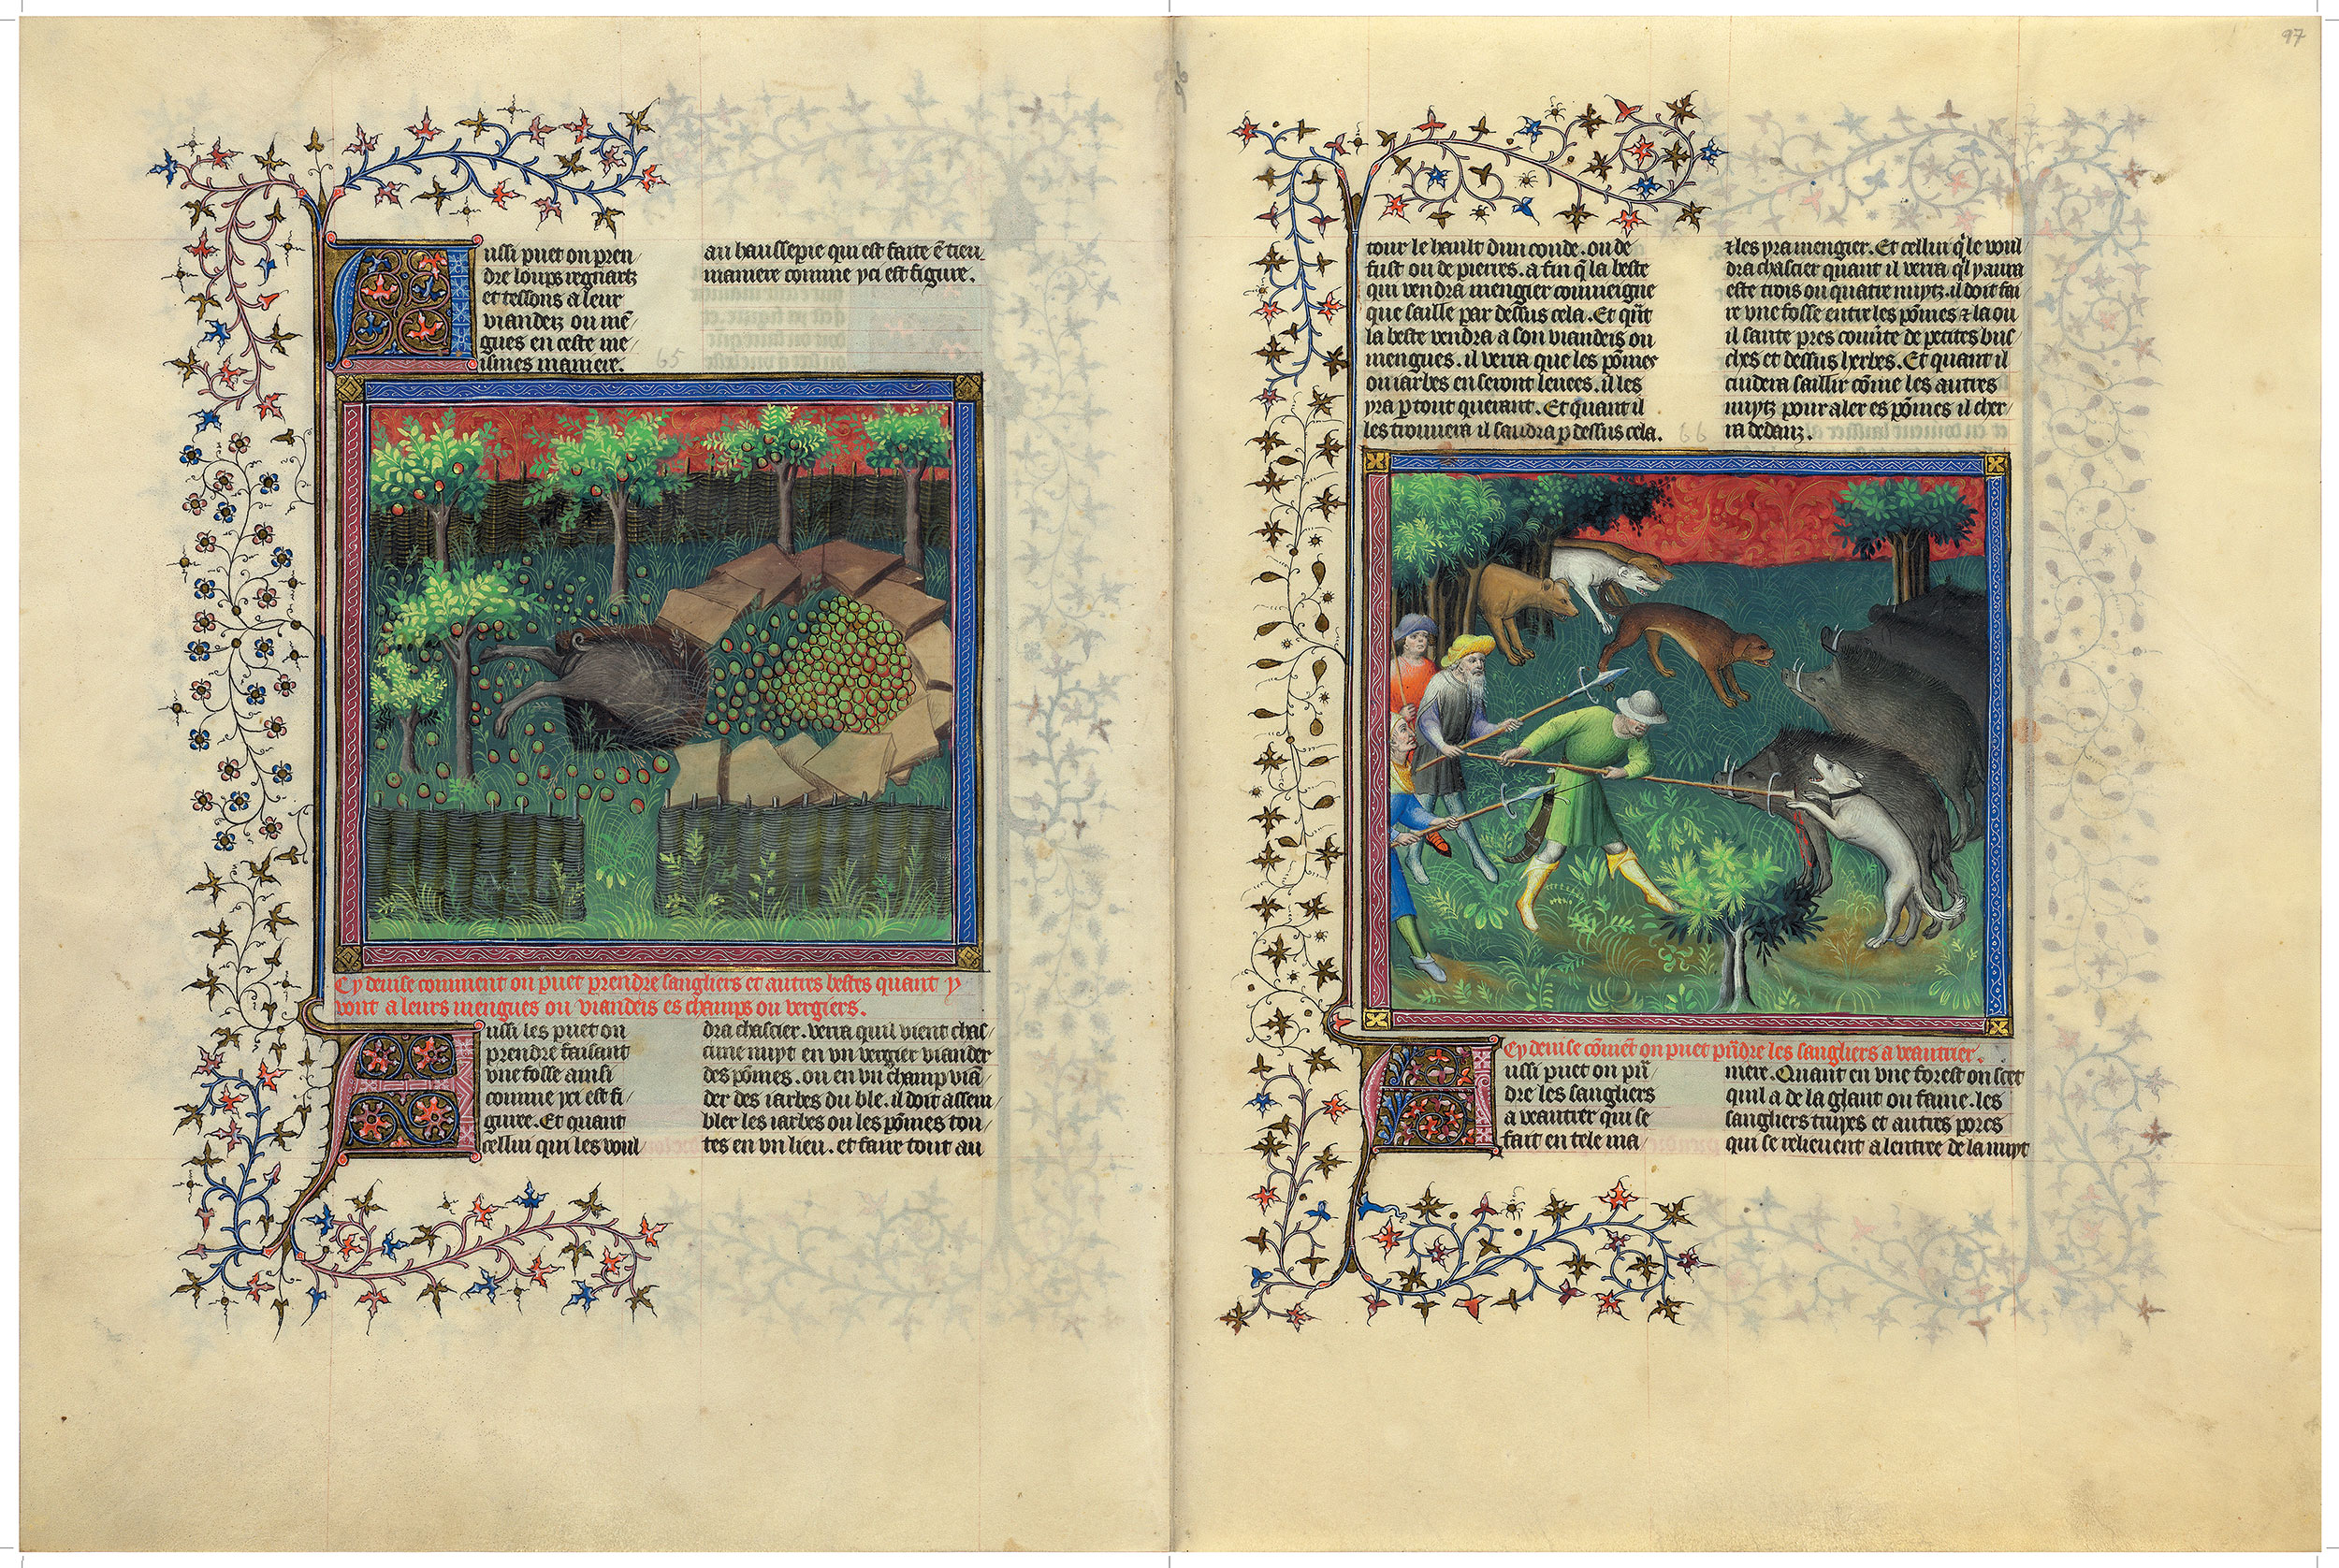 97
ussi puet on pren
dre loups regnartz
et tessons a leur
viandeiz ou mē
gues en ceste me
ismes maniere.
au haussepie qui est faite ē tieu
maniere comme yci est figure.
65
Cy deuise comment on puet prendre sangliers et autres bestes quant y
vont a leurs mengues ou viandeis es champs ou vergiers.
Aussi les puet on
prendre faisant
vne fosse ainsi
comme yci est fi
gure. Et quant
cellui qui les voul
dra chascier. verra quil vient chas
cune nuyt en vn vergier viander
des pōmes. ou en vn champ viā
der des iarbes du ble. il doit assem
bler les iarbes ou les pōmes tou
tes en vn lieu. et faire tout au
tour le hault dun coude. ou de
fust ou de pierres. a fin q̄ la beste
qui vendra mengier conueigne
que saille par dessus cela. Et qn̄t
la beste vendra a son viandeis ou
mengues. il verra que les pōmes
ou iarbes en seront leuees. il les
yra p tout querant. Et quant il
les trouuera il saudra p dessus cela.
66
⁊ les yra mengier. Et cellui q̄ le voul
dra chascier quant il verra ql y aura
este trois ou quatre nuytz. il doit fai
re vne fosse entre les pōmes ⁊ la ou
il saute pres couūte de petites bus
ches et dessus herbes. Et quant il
cuidera saillir cōme les autres
nuytz pour aler es pōmes il cher
ra dedanz.
Cy deuise cōmēt on puet pn̄dre les sangliers a veautrier.
Aussi puet on pn̄
dre les sangliers
a veautrier qui se
fait en tele ma
niere. Quant en vne forest on scet
quil a de la glant ou faine. les
sangliers truyes et autres porcs
qui se relieuent a lentree de la nuyt